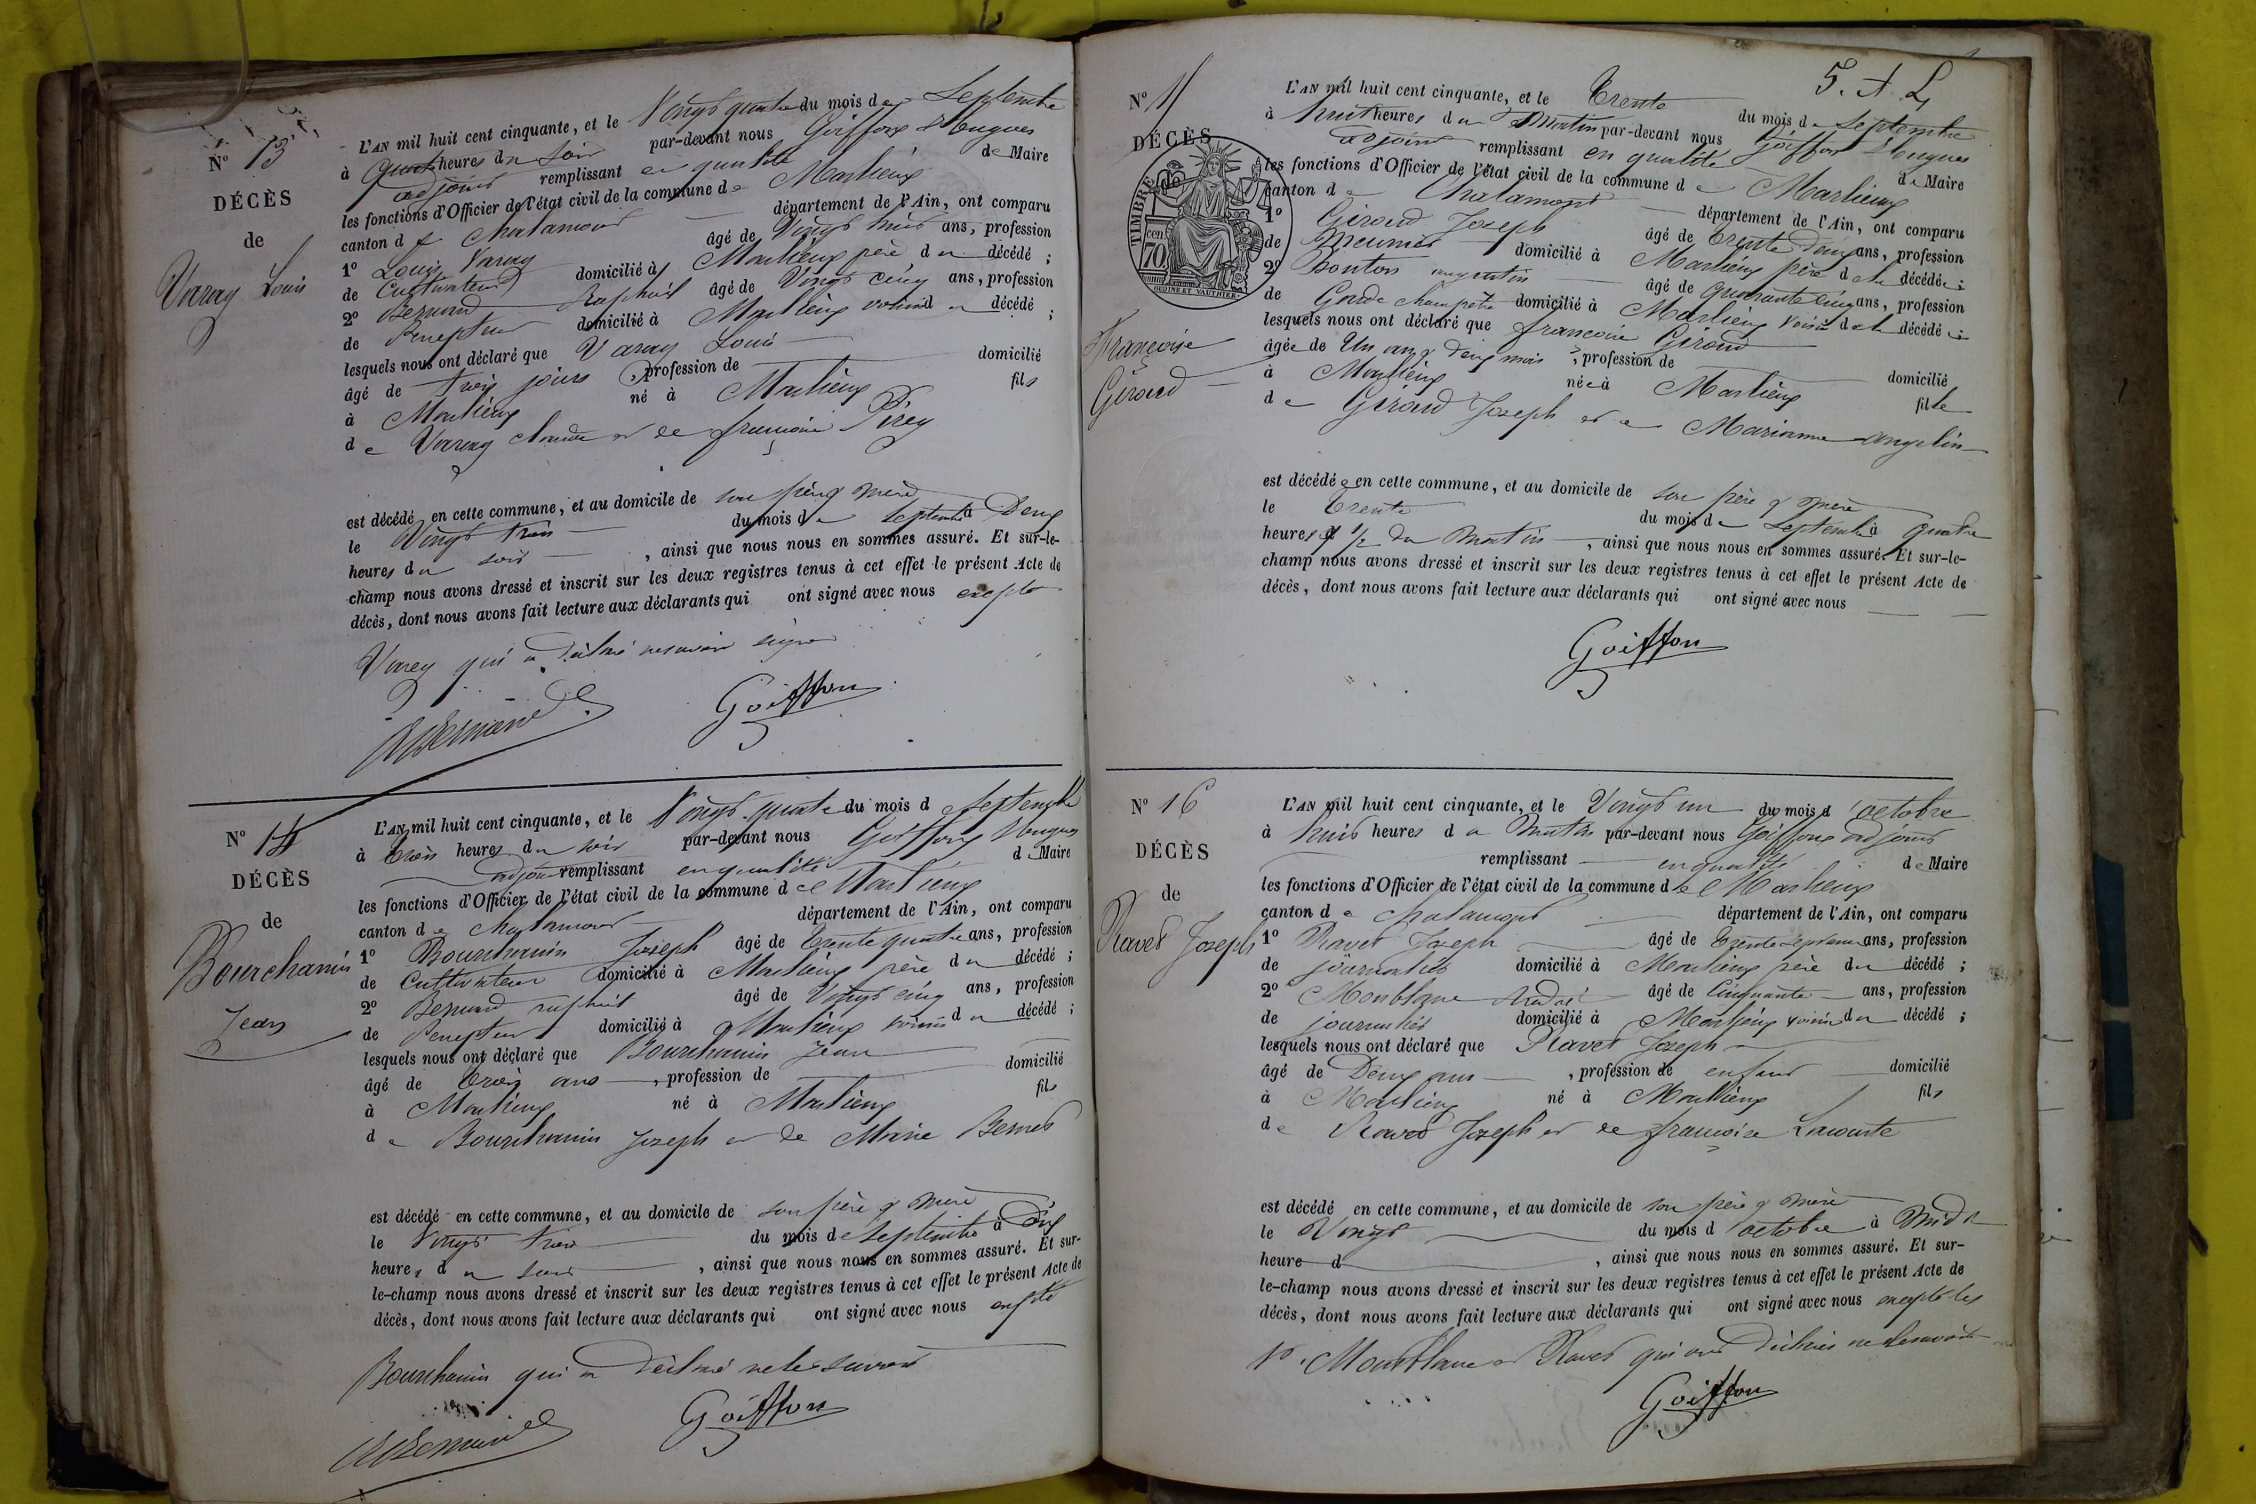 N° 13
DÉCÈS
de
Varay Louis
L'AN mil huit cent cinquante, et le Vingt quatre du mois de Septembre
à quatre heures du soir par-devant nous Goiffon Hugues
adjoint remplissant en qualité de Maire
les fonctions d'Officier de l'état civil de la commune de Marlieux
canton de Chalamont département de l'Ain, ont comparu
1° Louis Varay âgé de Vingt huit ans, profession
de Cultivateur domicilié à Marlieux père du décédé ;
2° Bernard Raphaël âgé de Vingt cinq ans, profession
de Percepteur domicilié à Marlieux voisin du décédé ;
lesquels nous ont déclaré que Varay Louis
âgé de trois jours , profession de domicilié
à Marlieux né à Marlieux fils
de Varay Claude et de françoise Pirey
est décédé en cette commune, et au domicile de son père & mère
le Vingt trois du mois de septembre à Deux
heures du soir , ainsi que nous nous en sommes assuré. Et sur-le-
champ nous avons dressé et inscrit sur les deux registres tenus à cet effet le présent Acte de
décès, dont nous avons fait lecture aux déclarants qui ont signé avec nous excepté
Varey qui a déclaré ne savoir signer
Bernard Goiffon
N° 14
DÉCÈS
de
Bourchanin
Jean
L'AN mil huit cent cinquante, et le Vingt quatre du mois d Septembre
à trois heures du soir par-devant nous Goiffon Hugues
adjoint remplissant en qualité de Maire
les fonctions d'Officier de l'état civil de la commune de Marlieux
canton de Chalamont département de l'Ain, ont comparu
1° Bourchanin Joseph âgé de trente quatre ans, profession
de Cultivateur domicilié à Marlieux père du décédé ;
2° Bernard raphaël âgé de Vingt cinq ans, profession
de Percepteur domicilié à Marlieux voisin du décédé ;
lesquels nous ont déclaré que Bourchanin Jean
âgé de trois ans , profession de domicilié
à Marlieux né à Marlieux fils
de Bourchanin Joseph et de Marie Bernet
est décédé en cette commune, et au domicile de son père & mère
le Vingt trois du mois de septembre à Dix
heures du soir , ainsi que nous nous en sommes assuré. Et sur-
le-champ nous avons dressé et inscrit sur les deux registres tenus à cet effet le présent Acte de
décès, dont nous avons fait lecture aux déclarants qui ont signé avec nous excepté
Bourchanin qui a déclaré ne le savoir
Bernard Goiffon
5. A L
N° 15
DÉCÈS
de
TIMBRE
70 cen.
OUDINE ET VAUTHIER
Françoise
Giroud
L'AN mil huit cent cinquante, et le trente du mois de septembre
à huit heures du Matin par-devant nous Goiffon Hugues
adjoint remplissant en qualité de Maire
les fonctions d'Officier de l'état civil de la commune de Marlieux
canton de Chalamont département de l'Ain, ont comparu
1° Giroud Joseph âgé de trente Deux ans, profession
de Meunier domicilié à Marlieux père de la décédée ;
2° Bouton augustin âgé de quarante cinq ans, profession
de Garde champêtre domicilié à Marlieux voisin de la décédée ;
lesquels nous ont déclaré que françoise Giroud
âgée de Un an & deux mois , profession de domicilié
à Marlieux née à Marlieux fille
de Giroud Joseph et de Marianne angelin
est décédée en cette commune, et au domicile de son père & mère
le trente du mois de septembre à quatre
heures & 1/2 du Matin , ainsi que nous nous en sommes assuré. Et sur-le-
champ nous avons dressé et inscrit sur les deux registres tenus à cet effet le présent Acte de
décès, dont nous avons fait lecture aux déclarants qui ont signé avec nous
Goiffon
N° 16
DÉCÈS
de
Ravet Joseph
L'AN mil huit cent cinquante, et le Vingt un du mois d'octobre
à huit heures du Matin par-devant nous Goiffon adjoint
remplissant en qualité de Maire
les fonctions d'Officier de l'état civil de la commune de Marlieux
canton de Chalamont département de l'Ain, ont comparu
1° Ravet Joseph âgé de trente sept ans, profession
de journalier domicilié à Marlieux père du décédé ;
2° Montblanc André âgé de Cinquante ans, profession
de journalier domicilié à Marlieux voisin du décédé ;
lesquels nous ont déclaré que Ravet Joseph
âgé de Deux ans , profession de enfant domicilié
à Marlieux né à Marlieux fils
de Ravet Joseph et de françoise Lacourte
est décédé en cette commune, et au domicile de son père & mère
le Vingt du mois d'octobre à Midi
heure d , ainsi que nous nous en sommes assuré. Et sur-
le-champ nous avons dressé et inscrit sur les deux registres tenus à cet effet le présent Acte de
décès, dont nous avons fait lecture aux déclarants qui ont signé avec nous excepté les
Montblanc et Ravet qui ont déclaré ne le savoir
Goiffon